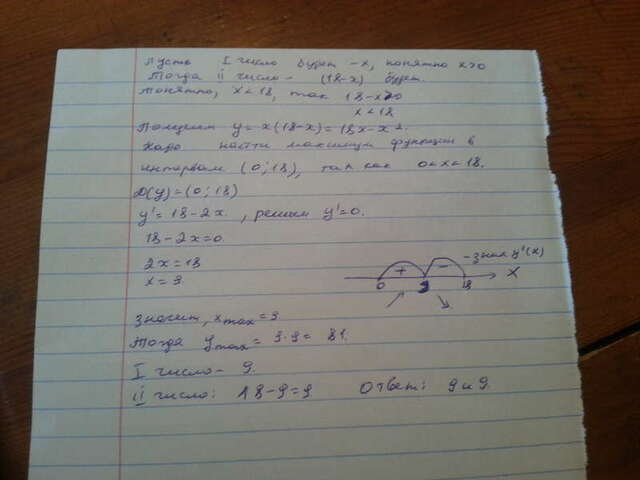 Пусть I число будет - x, понятно x>0
Тогда II число - (18-x) будет.
Понятно, x<18, так 18-x>0
x<18
Получим y = x(18-x) = 18x-x².
Надо найти максимум функции в
интервале (0;18), так как 0<x<18.
D(y)=(0;18)
y' = 18-2x, решим y'=0.
18-2x=0
2x=18
x=9
+ - - знак y'(x)
0 9 18 X
Значит, xmax=9
Тогда ymax = 9·9= 81.
I число - 9.
II число: 18-9=9 Ответ: 9 и 9.